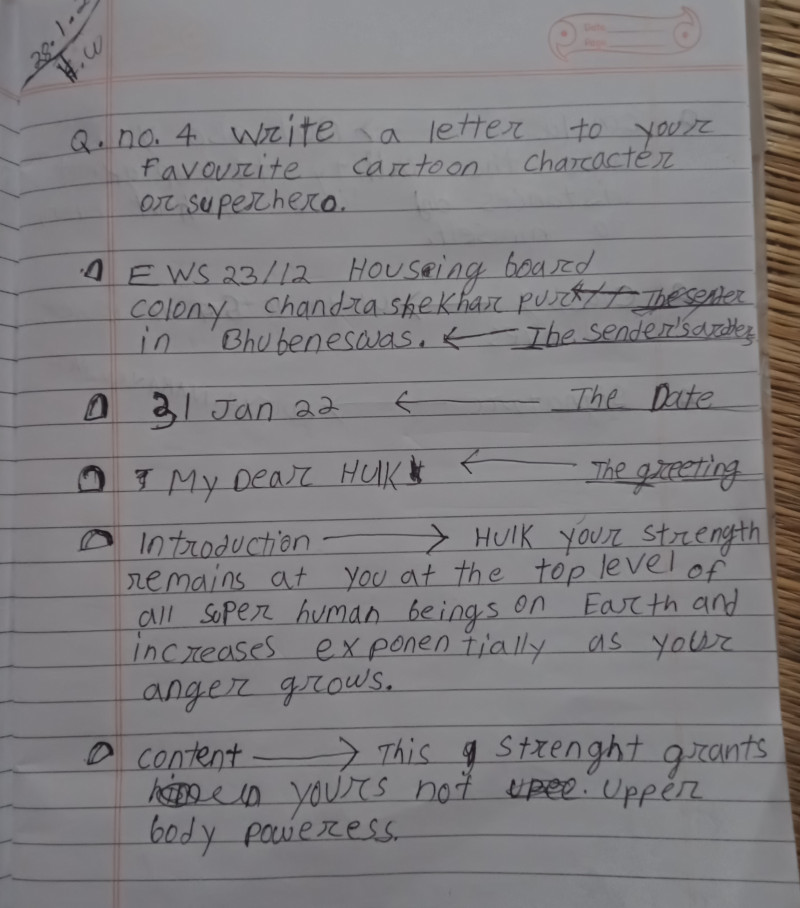 28.1.2
H.W
Date
Page
Q. no. 4 write a letter to your
favourite cartoon character
or superhero.
EWS 23/12 Houseing board
colony chandrashekhar pur
in Bhubeneswas. ← The sender's
31 Jan 22 ← The Date
My Dear HUlK ← The greeting
Introduction → HUlK your strength
remains at you at the top level of
all super human beings on Earth and
increases exponentially as your
anger grows.
content → This strenght grants
yours not upper
body poweress.